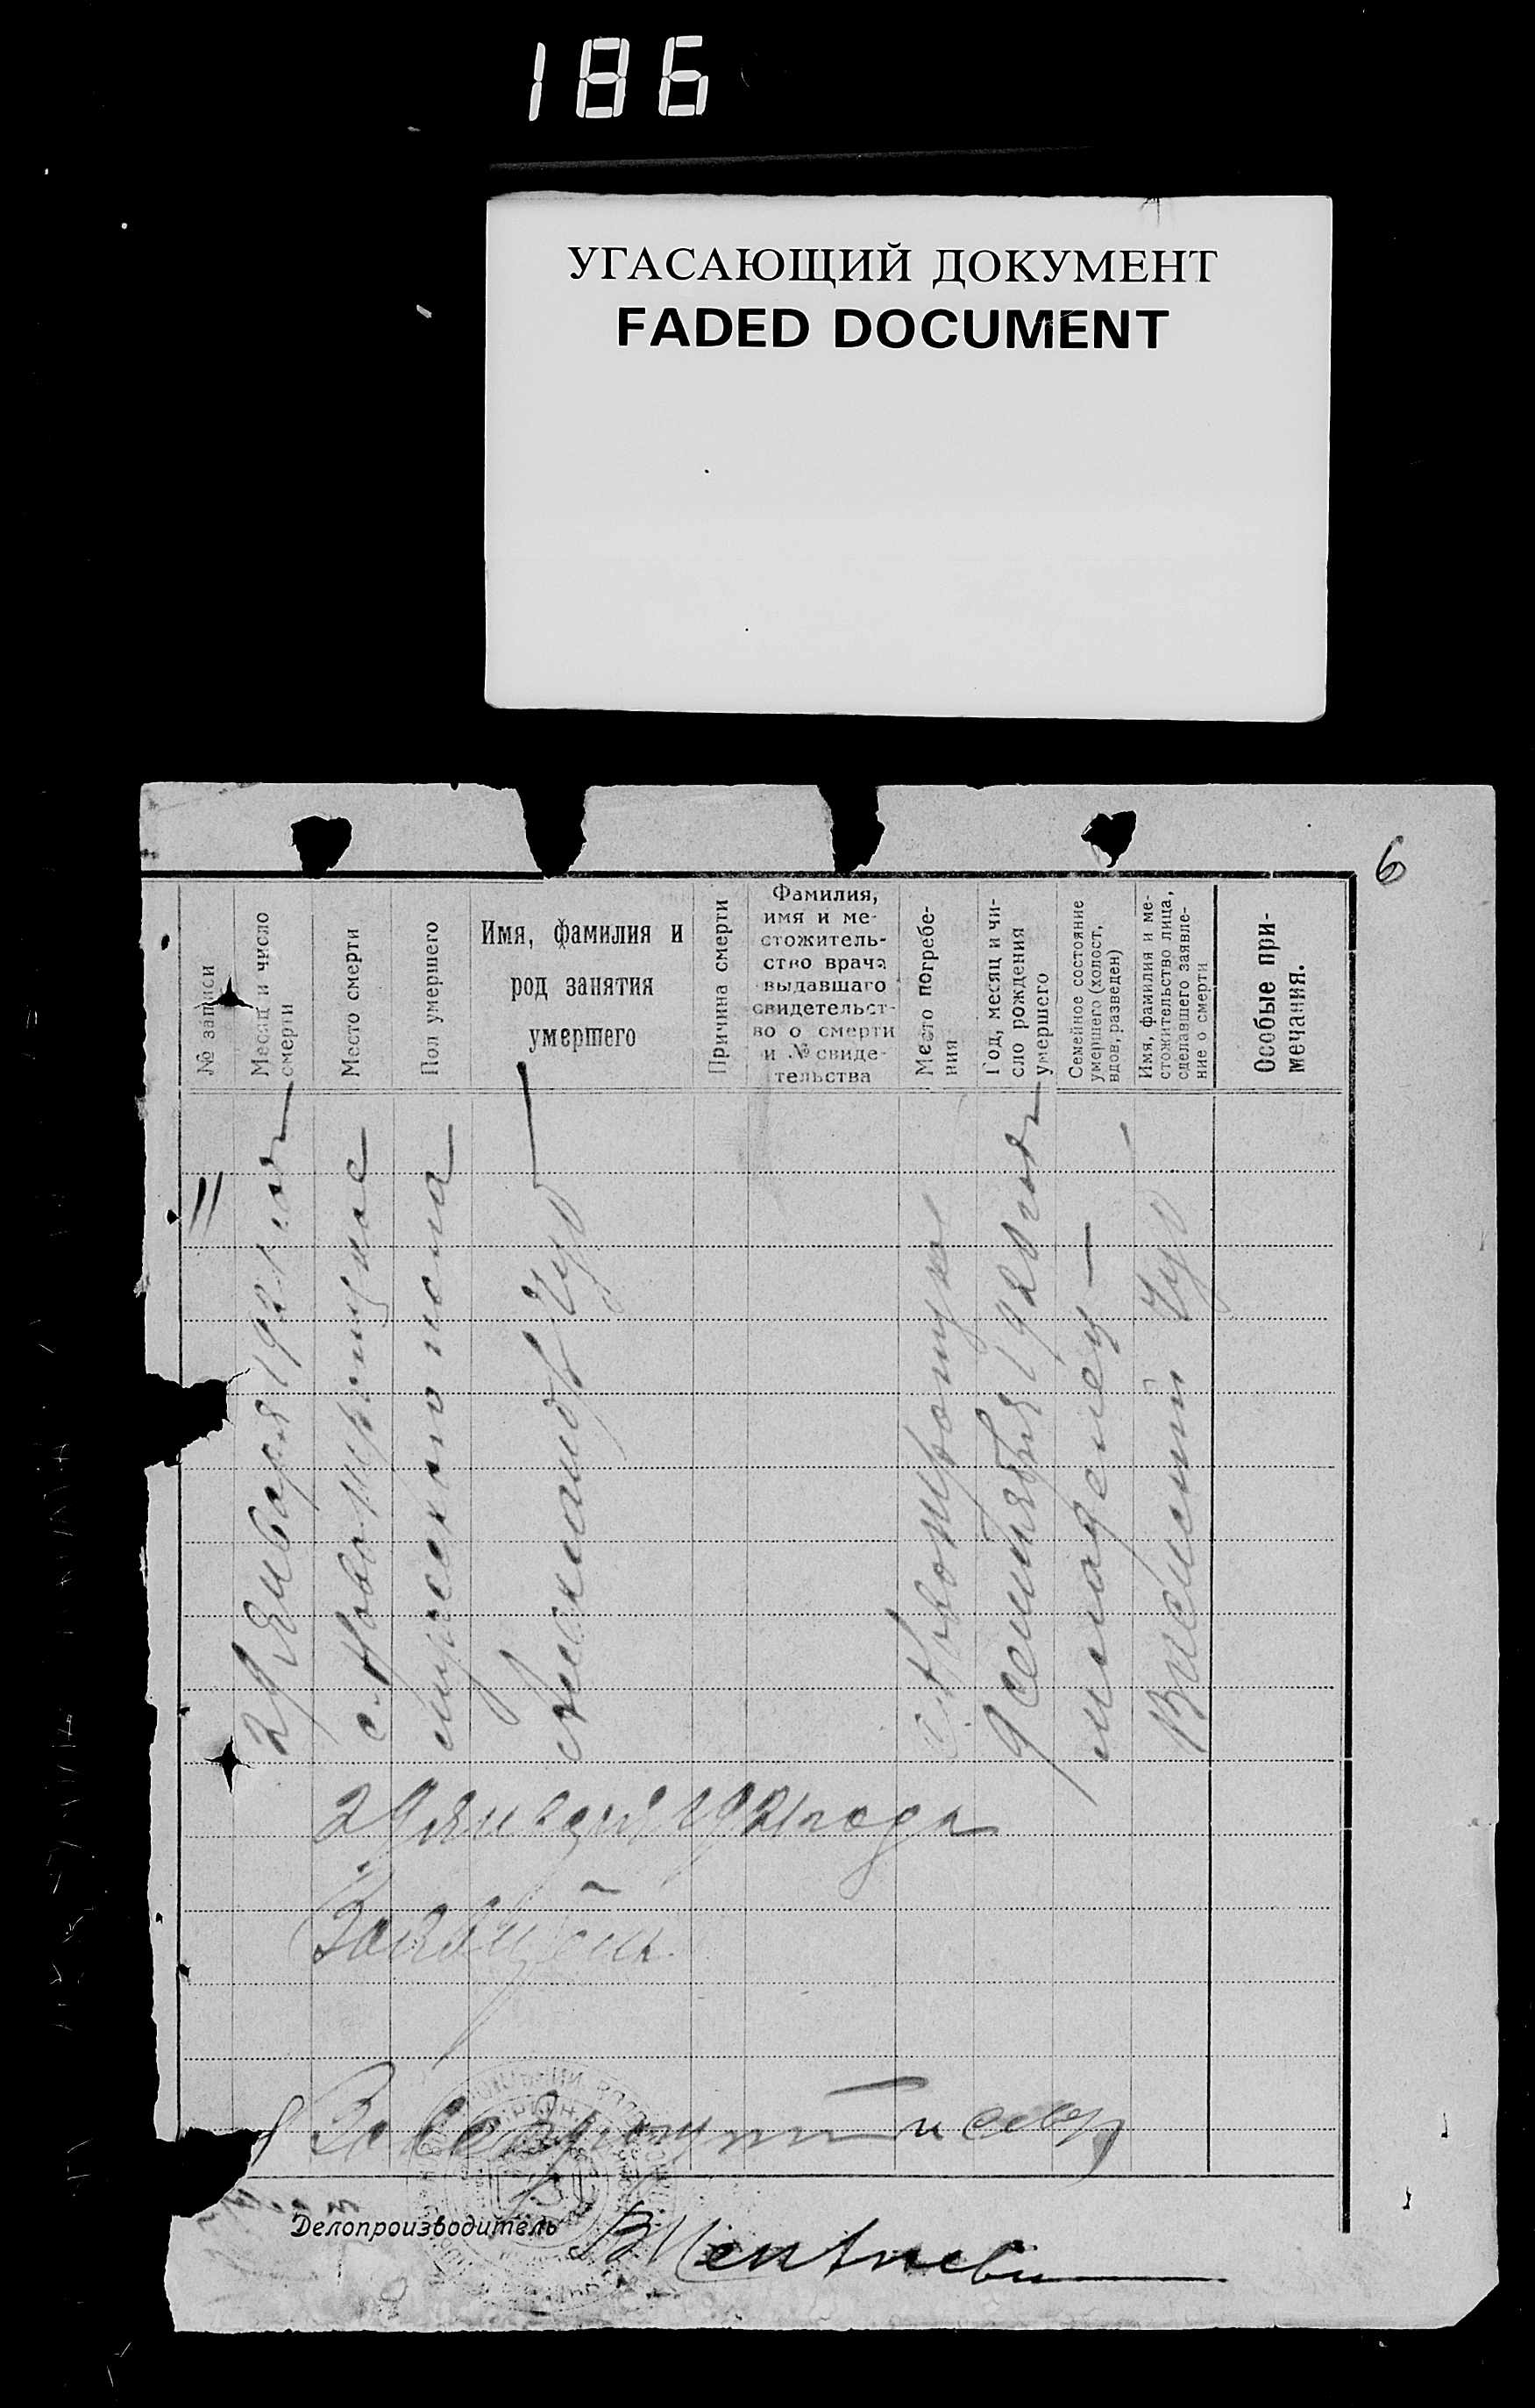 186
УГАСАЮЩИЙ ДОКУМЕНТ
FADED DOCUMENT
6
№ записи
Месяц и число
смерти
Место смерти
Пол умершего
Имя, фамилия и
род занятия
умершего
Причина смерти
Фамилия,
имя и ме-
стожитель-
ство врача
выдавшаго
свидетельст-
во о смерти
и № свиде-
тельства
Место погребе-
ния
Год, месяц и чи-
сло рождения
умершего
Семейное состояние
умершего (холост,
вдов, разведен)
Имя, фамилия и ме-
стожительство лица,
сделавшего заявле-
ние о смерти
Особые при-
мечания.
11
29 января 1921 года
с. Новотроицкое
мужского пола
Александр Чуб
с. Новотроицкое
9 сентября 1920 года
младенец
Василий Чуб
29 января 1921 года
Делопроизводитель